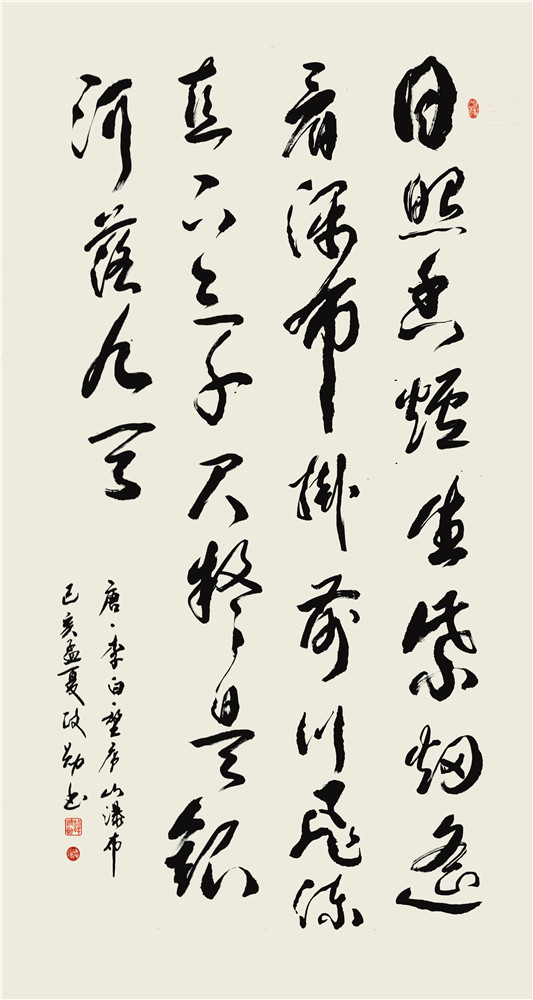 日照香爐生紫烟遥
看瀑布掛前川飛流
直下三千尺疑是銀
河落九天
唐·李白·望庐山瀑布
己亥孟夏政勋书